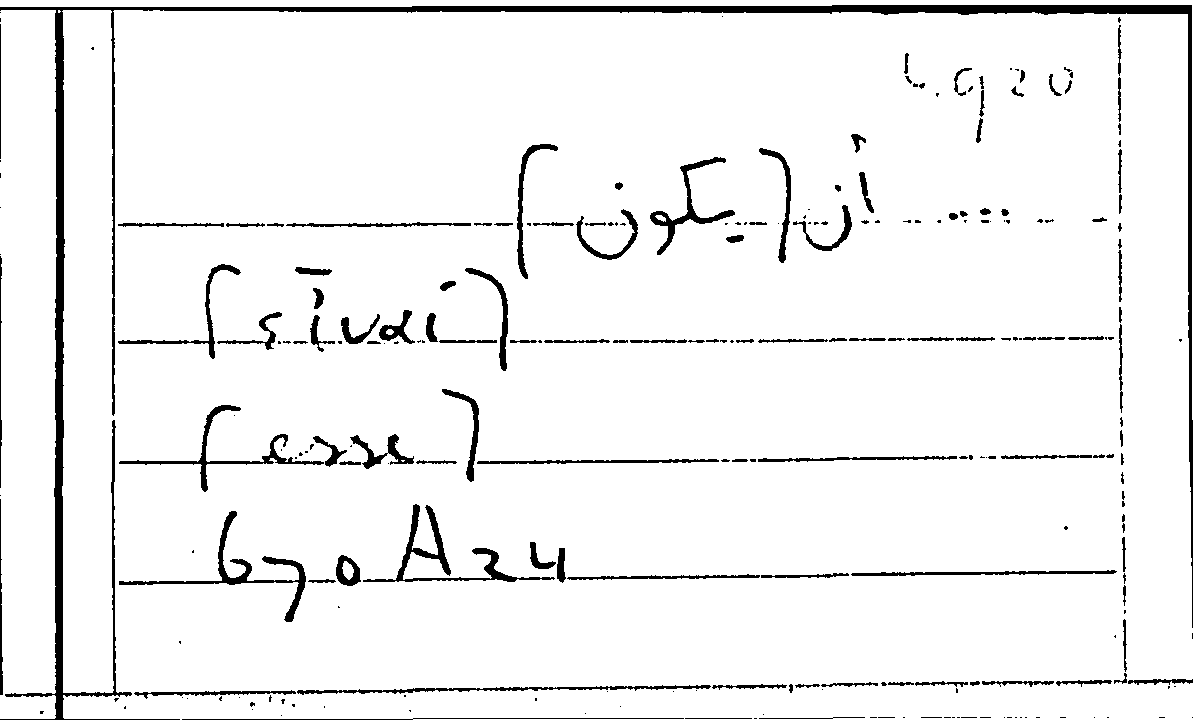 ... أن [يكون]
[εἶναι]
[esse]
670 A 24